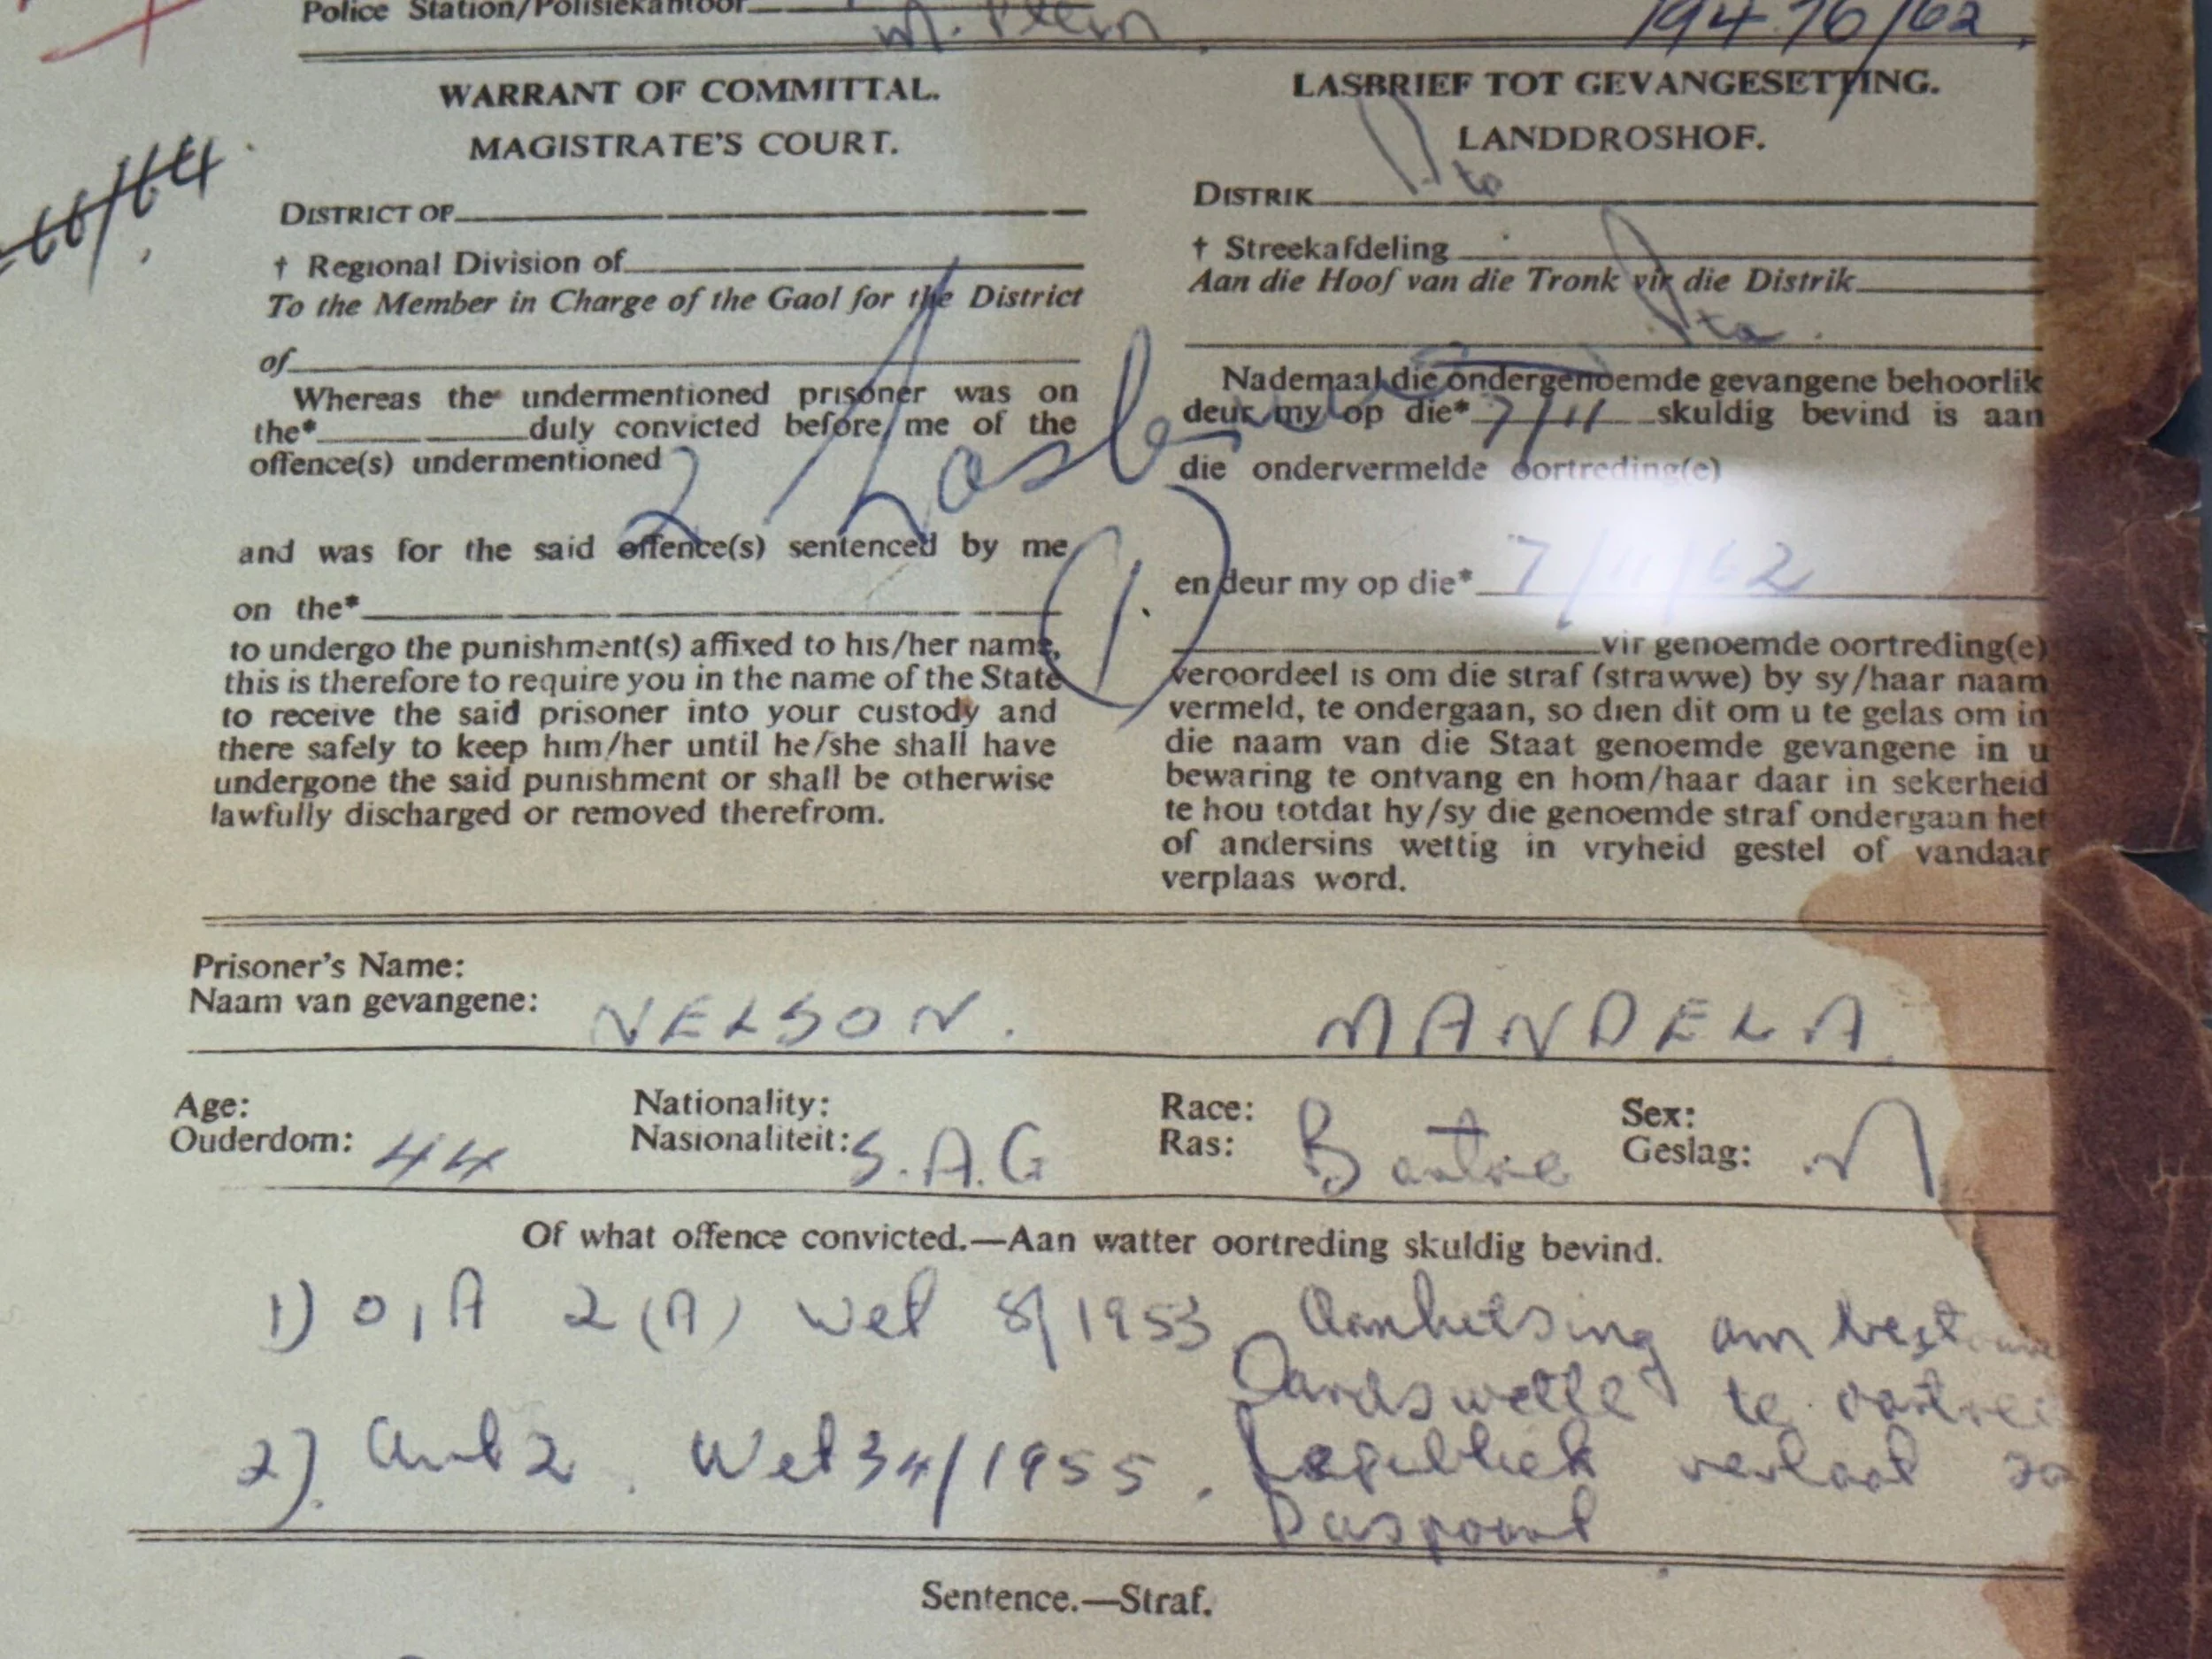 Police Station/Polisiekantoor
M. Plein
19476/62
WARRANT OF COMMITTAL.
MAGISTRATE'S COURT.
DISTRICT OF
† Regional Division of
To the Member in Charge of the Gaol for the District
of
Whereas the undermentioned prisoner was on
the* duly convicted before me of the
offence(s) undermentioned
and was for the said offence(s) sentenced by me
on the*
to undergo the punishment(s) affixed to his/her name,
this is therefore to require you in the name of the State
to receive the said prisoner into your custody and
there safely to keep him/her until he/she shall have
undergone the said punishment or shall be otherwise
lawfully discharged or removed therefrom.
66/64
2 Lasbriewe
(1.)
LASBRIEF TOT GEVANGESETTING.
LANDDROSHOF.
DISTRIK Pta
† Streekafdeling
Aan die Hoof van die Tronk vir die Distrik
Pta.
Nademaal die ondergenoemde gevangene behoorlik
deur my op die* 7/11 skuldig bevind is aan
die ondervermelde oortreding(e)
en deur my op die* 7/11/62
vir genoemde oortreding(e)
veroordeel is om die straf (strawwe) by sy/haar naam
vermeld, te ondergaan, so dien dit om u te gelas om in
die naam van die Staat genoemde gevangene in u
bewaring te ontvang en hom/haar daar in sekerheid
te hou totdat hy/sy die genoemde straf ondergaan het
of andersins wettig in vryheid gestel of vandaar
verplaas word.
Prisoner's Name:
Naam van gevangene: NELSON. MANDELA
Age: Nationality: Race: Sex:
Ouderdom: 44 Nasionaliteit: S.A.G Ras: Bantoe Geslag: M
Of what offence convicted.—Aan watter oortreding skuldig bevind.
1) O,A 2(A) Wet 8/1953 Aanhitsing om
Landswette te
2). Art 2. Wet 34/1955. Republiek verlaat
Paspoort
Sentence.—Straf.